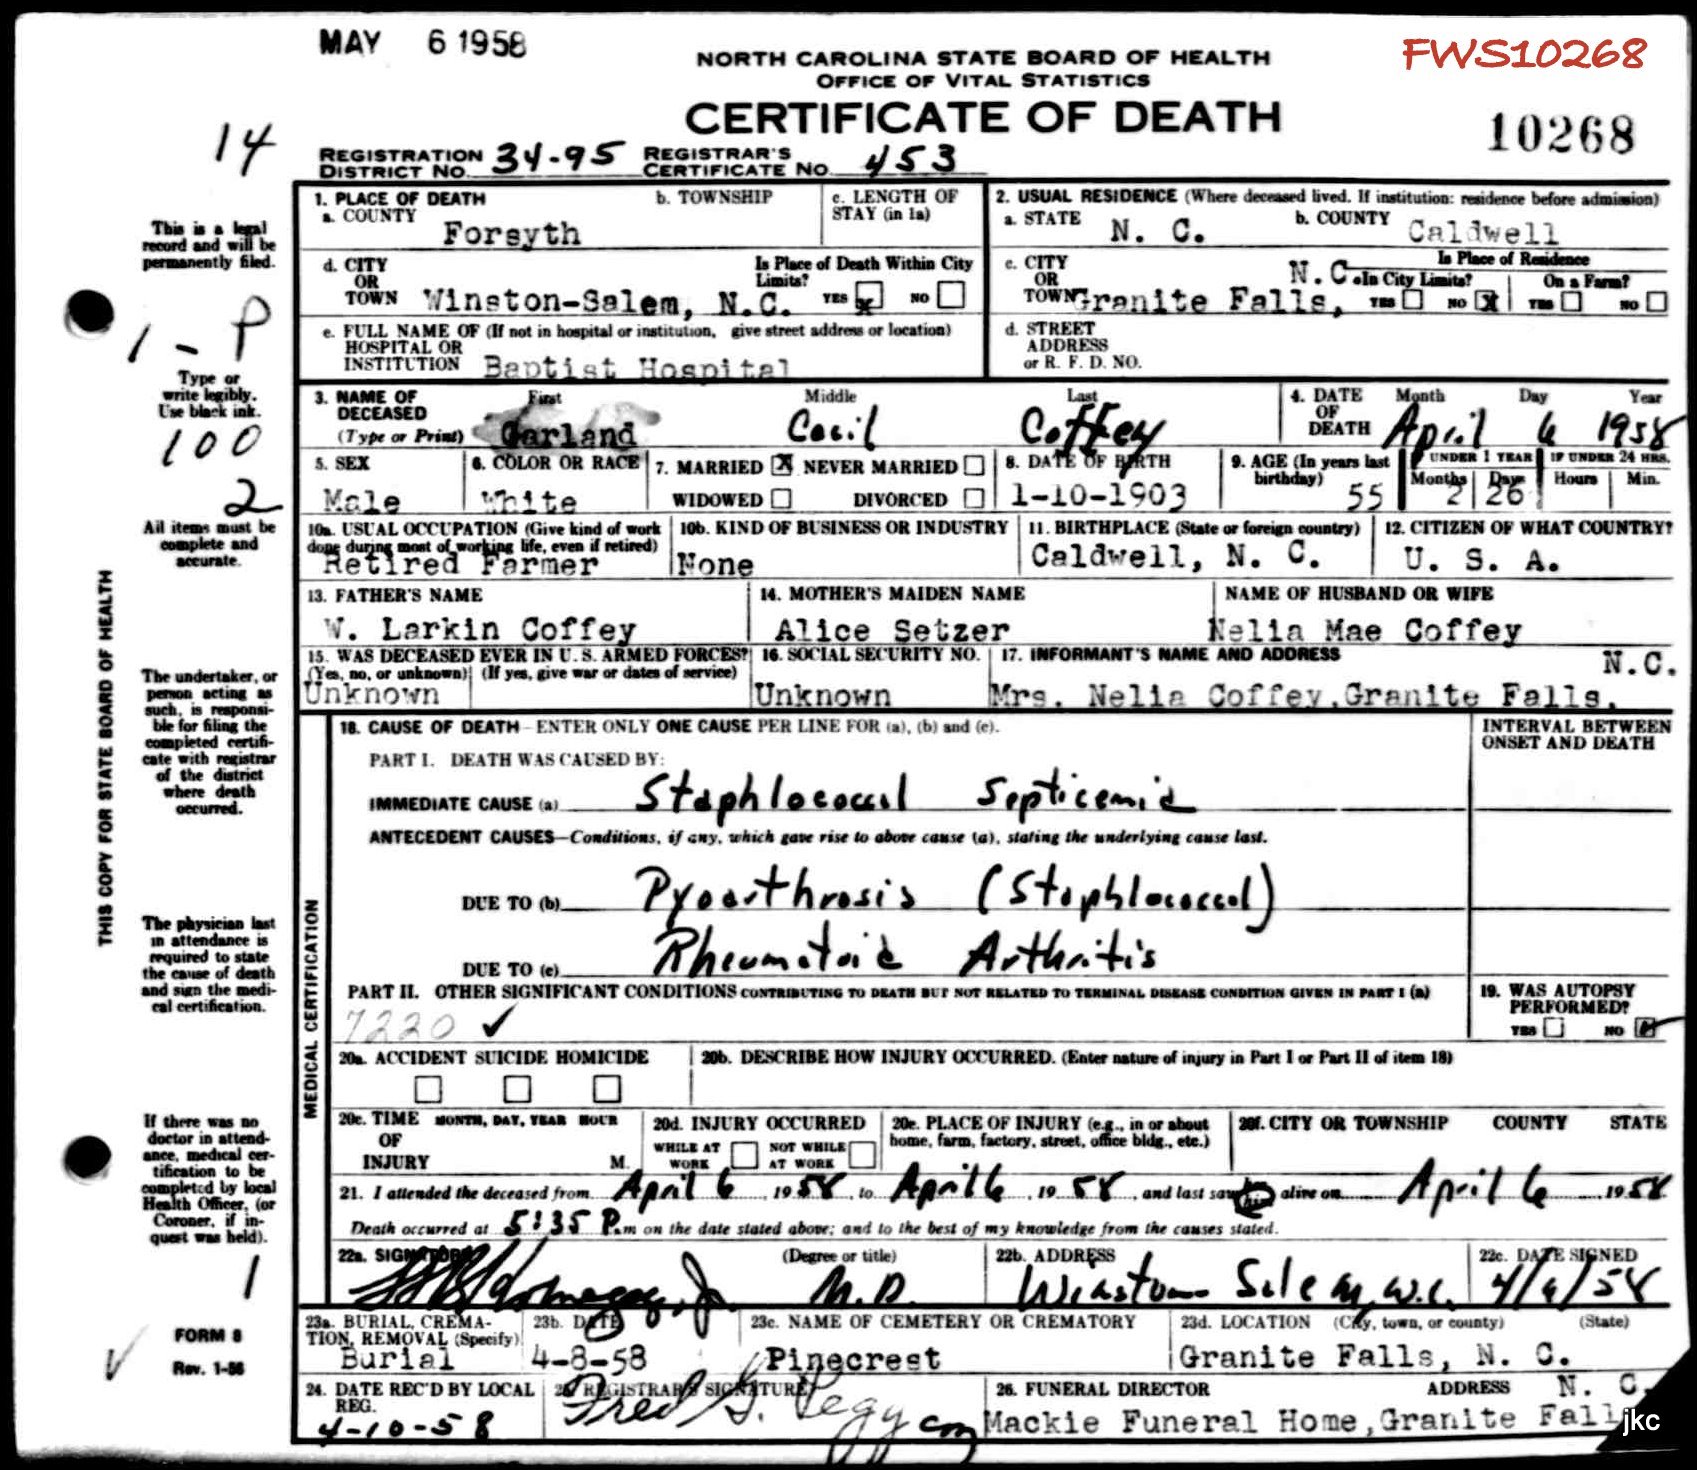 MAY 6 1958
FWS10268
NORTH CAROLINA STATE BOARD OF HEALTH
OFFICE OF VITAL STATISTICS
CERTIFICATE OF DEATH
10268
14
REGISTRATION DISTRICT NO. 34-95 REGISTRAR'S CERTIFICATE NO. 453
1. PLACE OF DEATH
a. COUNTY Forsyth
b. TOWNSHIP
c. LENGTH OF STAY (in 1a)
2. USUAL RESIDENCE (Where deceased lived. If institution: residence before admission)
a. STATE N. C. b. COUNTY Caldwell
d. CITY OR TOWN Winston-Salem, N.C.
Is Place of Death Within City Limits? YES x NO
c. CITY OR TOWN Granite Falls, N.C.
Is Place of Residence
In City Limits? YES NO X
On a Farm? YES NO
e. FULL NAME OF (If not in hospital or institution, give street address or location)
HOSPITAL OR
INSTITUTION Baptist Hospital
d. STREET
ADDRESS
or R. F. D. NO.
3. NAME OF DECEASED
(Type or Print)
First Middle Last
Garland Cecil Coffey
4. DATE OF DEATH Month Day Year
April 6 1958
5. SEX
Male
6. COLOR OR RACE
White
7. MARRIED X NEVER MARRIED
WIDOWED DIVORCED
8. DATE OF BIRTH
1-10-1903
9. AGE (In years last birthday)
55
UNDER 1 YEAR
Months 2 Days 26
IF UNDER 24 HRS.
Hours Min.
10a. USUAL OCCUPATION (Give kind of work
done during most of working life, even if retired)
Retired Farmer
10b. KIND OF BUSINESS OR INDUSTRY
None
11. BIRTHPLACE (State or foreign country)
Caldwell, N. C.
12. CITIZEN OF WHAT COUNTRY?
U. S. A.
13. FATHER'S NAME
W. Larkin Coffey
14. MOTHER'S MAIDEN NAME
Alice Setzer
NAME OF HUSBAND OR WIFE
Nelia Mae Coffey
15. WAS DECEASED EVER IN U. S. ARMED FORCES?
(Yes, no, or unknown) (If yes, give war or dates of service)
Unknown
16. SOCIAL SECURITY NO.
Unknown
17. INFORMANT'S NAME AND ADDRESS
Mrs. Nelia Coffey, Granite Falls, N.C.
MEDICAL CERTIFICATION
18. CAUSE OF DEATH - ENTER ONLY ONE CAUSE PER LINE FOR (a), (b) and (c).
INTERVAL BETWEEN
ONSET AND DEATH
PART I. DEATH WAS CAUSED BY:
IMMEDIATE CAUSE (a) Staphlococcal Septicemia
ANTECEDENT CAUSES—Conditions, if any, which gave rise to above cause (a), stating the underlying cause last.
DUE TO (b) Pyoarthrosis (Staphlococcal)
DUE TO (c) Rheumatoid Arthritis
PART II. OTHER SIGNIFICANT CONDITIONS CONTRIBUTING TO DEATH BUT NOT RELATED TO TERMINAL DISEASE CONDITION GIVEN IN PART I (a)
7220 ✓
19. WAS AUTOPSY
PERFORMED?
YES NO
20a. ACCIDENT SUICIDE HOMICIDE
20b. DESCRIBE HOW INJURY OCCURRED. (Enter nature of injury in Part I or Part II of item 18)
20c. TIME OF INJURY MONTH, DAY, YEAR HOUR
M.
20d. INJURY OCCURRED
WHILE AT WORK NOT WHILE AT WORK
20e. PLACE OF INJURY (e.g., in or about
home, farm, factory, street, office bldg., etc.)
20f. CITY OR TOWNSHIP COUNTY STATE
21. I attended the deceased from April 6, 1958, to April 6, 1958, and last saw him alive on April 6 1958
Death occurred at 5:35 P.m on the date stated above; and to the best of my knowledge from the causes stated.
22a. SIGNATURE (Degree or title)
Jr. M.D.
22b. ADDRESS
Winston Salem, N.C.
22c. DATE SIGNED
4/6/58
23a. BURIAL, CREMATION, REMOVAL (Specify)
Burial
23b. DATE
4-8-58
23c. NAME OF CEMETERY OR CREMATORY
Pinecrest
23d. LOCATION (City, town, or county) (State)
Granite Falls, N. C.
24. DATE REC'D BY LOCAL REG.
4-10-58
25. REGISTRAR'S SIGNATURE
Fred G. Pegg
26. FUNERAL DIRECTOR ADDRESS
Mackie Funeral Home, Granite Fall N. C.
jkc
This is a legal
record and will be
permanently filed.
1 - P
Type or
write legibly.
Use black ink.
100
2
All items must be
complete and
accurate.
THIS COPY FOR STATE BOARD OF HEALTH
The undertaker, or
person acting as
such, is responsi-
ble for filing the
completed certifi-
cate with registrar
of the district
where death
occurred.
The physician last
in attendance is
required to state
the cause of death
and sign the medi-
cal certification.
If there was no
doctor in attend-
ance, medical cer-
tification to be
completed by local
Health Officer, (or
Coroner, if in-
quest was held).
1
FORM 8
Rev. 1-56
✓